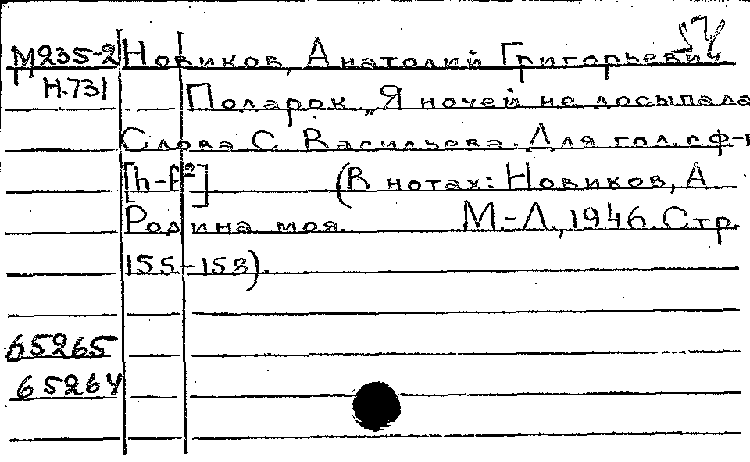 М235-2 Новиков, Анатолий Григорьевич
Н.731 Подарок „Я ночей не досыпала
Слова С. Васильева. Для гол. с ф-п
[h-f²] (В нотах: Новиков, А.
Родина моя. М.-Л., 1946. Стр.
155-158).
65265
65264